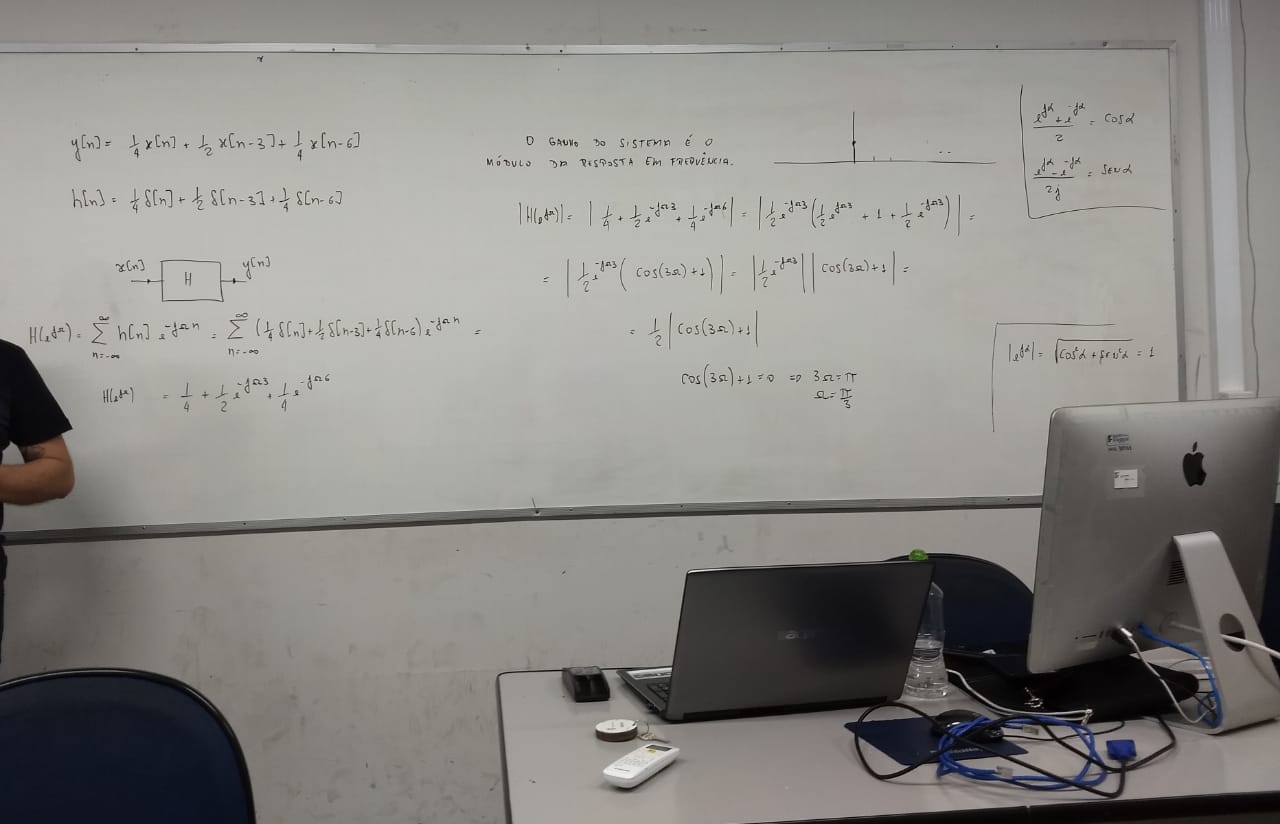 y[n] = 1/4 x[n] + 1/2 x[n-3] + 1/4 x[n-6]
h[n] = 1/4 δ[n] + 1/2 δ[n-3] + 1/4 δ[n-6]
x[n] H y[n]
H(e^jΩ) = ∑_{n=-∞}^{∞} h[n] e^-jΩn = ∑_{n=-∞}^{∞} (1/4 δ[n] + 1/2 δ[n-3] + 1/4 δ[n-6]) e^-jΩn =
H(e^jΩ) = 1/4 + 1/2 e^-jΩ3 + 1/4 e^-jΩ6
O GANHO DO SISTEMA É O
MÓDULO DA RESPOSTA EM FREQUÊNCIA.
|H(e^jΩ)| = |1/4 + 1/2 e^-jΩ3 + 1/4 e^-jΩ6| = |1/2 e^-jΩ3 (1/2 e^jΩ3 + 1 + 1/2 e^-jΩ3)| =
= |1/2 e^-jΩ3 (cos(3Ω)+1)| = |1/2 e^-jΩ3| |cos(3Ω)+1| =
= 1/2 |cos(3Ω)+1|
cos(3Ω)+1=0 ⇒ 3Ω=π
Ω=π/3
(e^jα + e^-jα)/2 = cosα
(e^jα - e^-jα)/2j = senα
|e^jα| = √(cos²α + sen²α) = 1